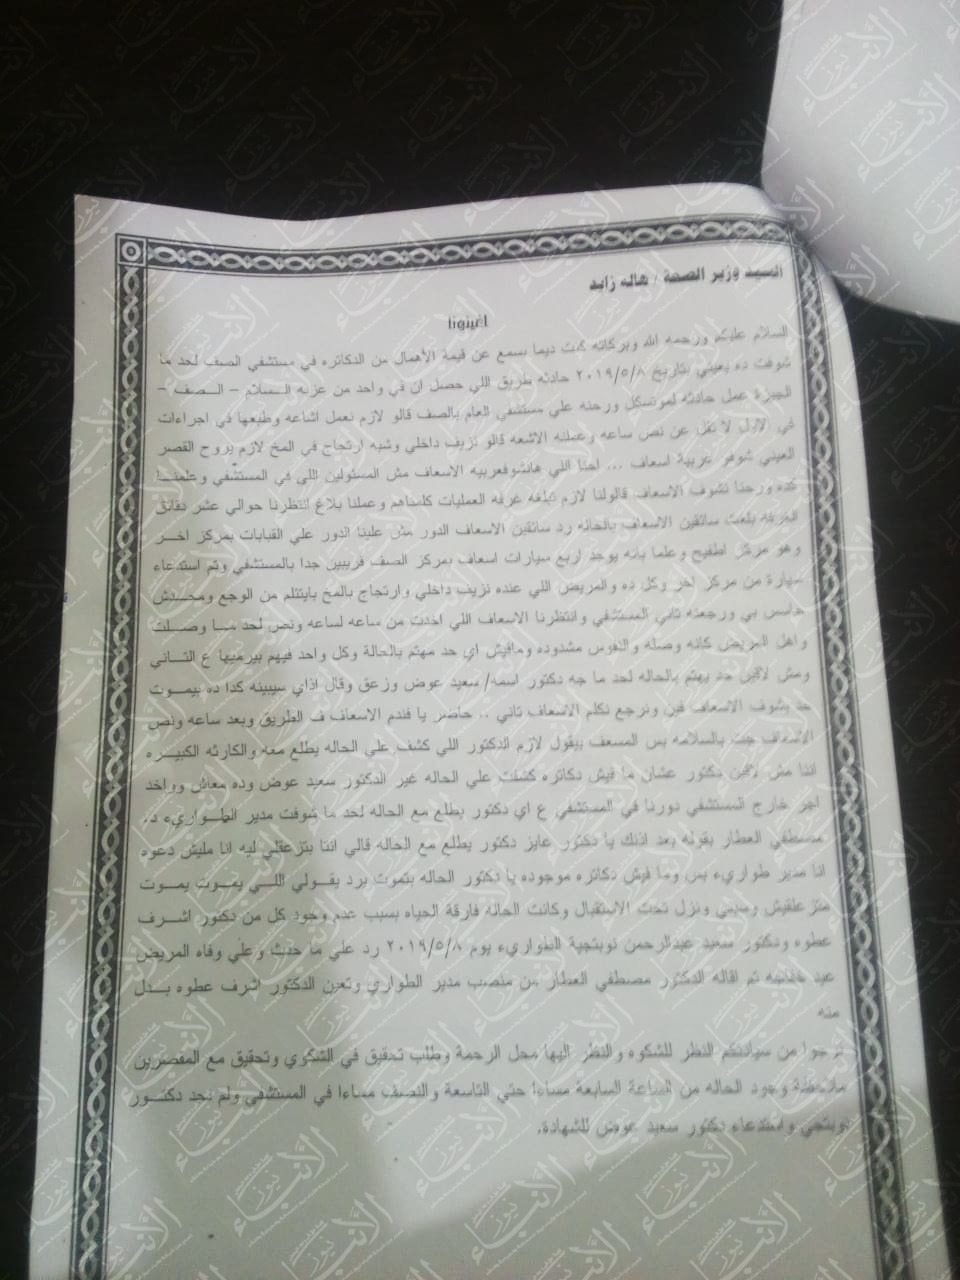 السيد وزير الصحة / هاله زايد
اغيثونا
السلام عليكم ورحمه الله وبركاته كنت ديما بسمع عن قيمة الأهمال من الدكاتره في مستشفي الصف لحد ما
شوفت ده بعيني بتاريخ ٢٠١٩/٥/٨ حادثه طريق اللي حصل ان في واحد من عزبه السلام – الصف –
الجيزة عمل حادثه لموتسكل ورحنه علي مستشفي العام بالصف قالو لازم نعمل اشاعه وطبعها في اجراءات
في الاول لا تقل عن نص ساعه وعملنه الاشعه قالو نزيف داخلي وشبه ارتجاج في المخ لازم يروح القصر
العيني شوفو عربية اسعاف ... احنا اللي هانشوفعربيه الاسعاف مش المسئولين اللي في المستشفي وعلمنا
كده ورحنا نشوف الاسعاف قالولنا لازم تبلغه غرفه العمليات كلمناهم وعملنا بلاغ انتظرنا حوالي عشر دقائق
الغرفه بلغت سائقين الاسعاف بالحاله رد سائقين الاسعاف الدور مش علينا الدور علي القبابات بمركز اخر
وهو مركز اطفيح وعلما بانه يوجد اربع سيارات اسعاف بمركز الصف قريبين جدا بالمستشفي وتم استدعاء
سيارة من مركز اخر وكل ده والمريض اللي عنده نزيف داخلي وارتجاج بالمخ بايتئلم من الوجع ومحدش
حاسس بي ورجعته تاني المستشفي وانتظرنا الاسعاف اللي اخدت من ساعه لساعه ونص لحد ما وصلت
واهل المريض كانه وصله والنفوس مشدوده ومافيش اي حد مهتم بالحالة وكل واحد فيهم بيرميها ع التاني
ومش لاقين حد يهتم بالحاله لحد ما جه دكتور اسمه/ سعيد عوض وزعق وقال اذاي سيبينه كدا ده بيموت
حد يشوف الاسعاف فين ونرجع نكلم الاسعاف تاني .. حاضر يا فندم الاسعاف ف الطريق وبعد ساعه ونص
الاسعاف جت بالسلامه بس المسعف بيقول لازم الدكتور اللي كشف علي الحاله يطلع معه والكارثه الكبيره
اننا مش لاقين دكتور عشان ما فيش دكاتره كشفت علي الحاله غير الدكتور سعيد عوض وده معاش وواخد
اجر خارج المستشفي دورنا في المستشفي ع اي دكتور يطلع مع الحاله لحد ما شوفت مدير الطواريء د.
مصطفي العطار بقوله بعد اذنك يا دكتور عايز دكتور يطلع مع الحاله قالي انتا بتزعقلي ليه انا مليش دعوه
انا مدير طواريء بس وما فيش دكاتره موجوده يا دكتور الحاله بتموت برد يقولي اللي يموت يموت
متزعلقيش وسبني ونزل تحت الاستقبال وكانت الحاله فارقة الحياه بسبب عدم وجود كل من دكتور اشرف
عطوه ودكتور سعيد عبدالرحمن نوبتجية الطواريء يوم ٢٠١٩/٥/٨ رد علي ما حدث وعلي وفاه المريض
عيد تم اقاله الدكتور مصطفي العطار من منصب مدير الطواري وتعين الدكتور اشرف عطوه بدل
منه
نرجوا من سيادتكم النظر للشكوه والنظر اليها محل الرحمة وطلب تحقيق في الشكوي وتحقيق مع المقصرين
ملاحظة وجود الحاله من الساعة السابعة مساءا حتي التاسعة والنصف مساءا في المستشفي ولم نجد دكتور
نوبتجي واستدعاء دكتور سعيد عوض للشهادة.
الأنباء نيوز